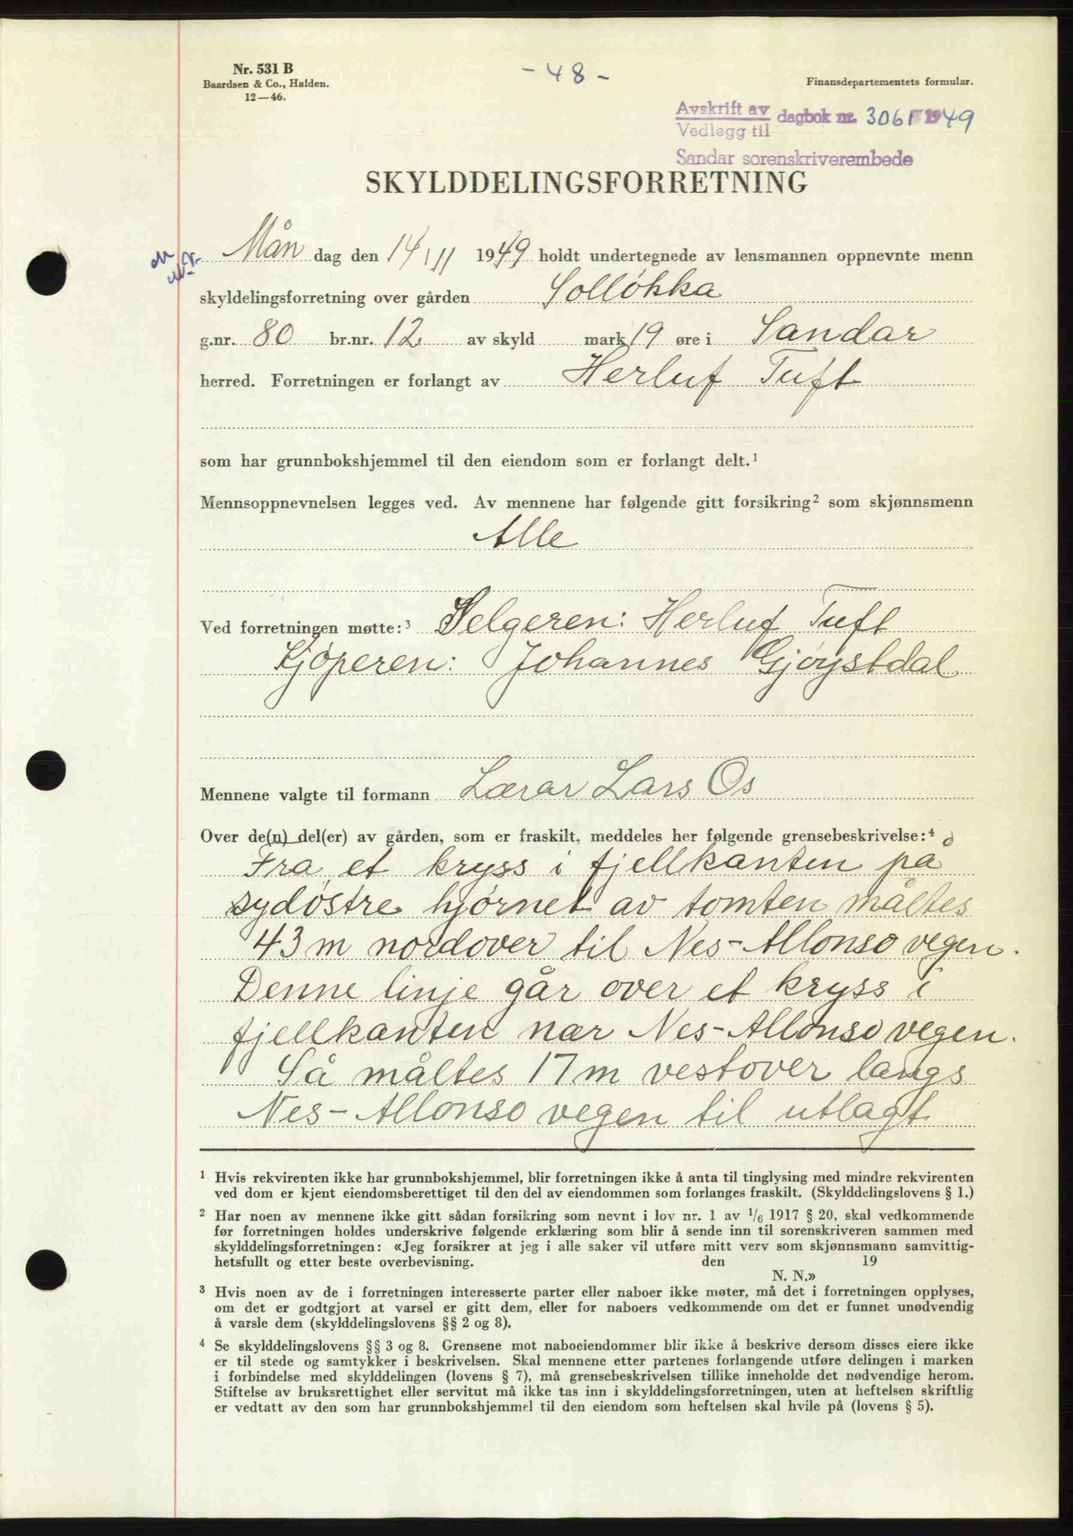 Nr. 531 B
Baardsen & Co., Halden.
12—46.
- 48 -
Finansdepartementets formular.
Avskrift av
Vedlegg til
dagbok nr. 3061 1949
Sandar sorenskriverembede
SKYLDDELINGSFORRETNING
Mån dag den 14/11 1949 holdt undertegnede av lensmannen oppnevnte menn
skyldelingsforretning over gården Solløkka
g.nr. 80 br.nr. 12 av skyld mark 19 øre i Sandar
herred. Forretningen er forlangt av Herluf Tuft
som har grunnbokshjemmel til den eiendom som er forlangt delt.¹
Mennsoppnevnelsen legges ved. Av mennene har følgende gitt forsikring² som skjønnsmenn
Alle
Ved forretningen møtte:³ Selgeren: Herluf Tuft
Kjøperen: Johannes Gjøystdal
Mennene valgte til formann Lærar Lars Os
Over de(n) del(er) av gården, som er fraskilt, meddeles her følgende grensebeskrivelse:⁴
Fra et kryss i fjellkanten på
sydøstre hjørnet av tomten måltes
43 m nordover til Nes-Allonsø vegen.
Denne linje går over et kryss i
fjellkanten nær Nes-Allonsø vegen.
Så måltes 17 m vestover langs
Nes-Allonsø vegen til utlagt
¹ Hvis rekvirenten ikke har grunnbokshjemmel, blir forretningen ikke å anta til tinglysing med mindre rekvirenten
ved dom er kjent eiendomsberettiget til den del av eiendommen som forlanges fraskilt. (Skylddelingslovens § 1.)
² Har noen av mennene ikke gitt sådan forsikring som nevnt i lov nr. 1 av 1/6 1917 § 20, skal vedkommende
før forretningen holdes underskrive følgende erklæring som blir å sende inn til sorenskriveren sammen med
skylddelingsforretningen: «Jeg forsikrer at jeg i alle saker vil utføre mitt verv som skjønnsmann samvittig-
hetsfullt og etter beste overbevisning. den 19
N. N.»
³ Hvis noen av de i forretningen interesserte parter eller naboer ikke møter, må det i forretningen opplyses,
om det er godtgjort at varsel er gitt dem, eller for naboers vedkommende om det er funnet unødvendig
å varsle dem (skylddelingslovens §§ 2 og 8).
⁴ Se skylddelingslovens §§ 3 og 8. Grensene mot naboeiendommer blir ikke å beskrive dersom disses eiere ikke
er til stede og samtykker i beskrivelsen. Skal mennene etter partenes forlangende utføre delingen i marken
i forbindelse med skylddelingen (lovens § 7), må grensebeskrivelsen tillike inneholde det nødvendige herom.
Stiftelse av bruksrettighet eller servitut må ikke tas inn i skylddelingsforretningen, uten at heftelsen skriftlig
er vedtatt av den som har grunnbokshjemmel til den eiendom som heftelsen skal hvile på (lovens § 5).